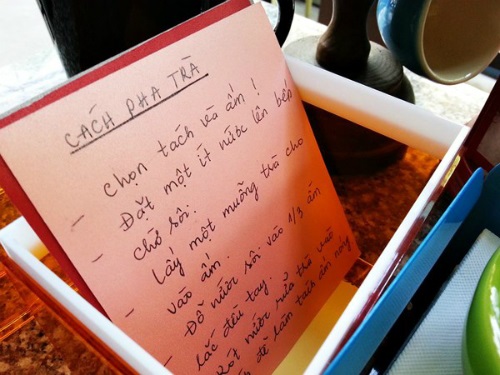 CÁCH PHA TRÀ
chọn tách và ấm!
- Đặt một ít nước lên bếp
chờ sôi.
- Lấy một muỗng trà cho
vào ấm.
- Đổ nước sôi vào 1/3 ấm
- lắc đều tay.
Rót nước rửa thế vào
để làm tách ấm nóng